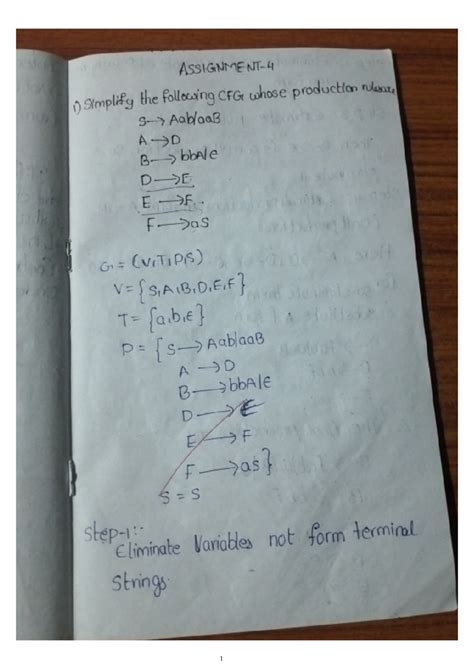 ASSIGNMENT-4
1) Simplify the following CFG whose production rules are
S → Aab/aaB
A → D
B → bbA/ϵ
D → E
E → F
F → aS
G = (V,T,P,S)
V = {S,A,B,D,E,F}
T = {a,b,ϵ}
P = {S → Aab|aaB
A → D
B → bbA/ϵ
D → E
E → F
F → as}
S = S
Step-1:-
Eliminate Variables not form terminal
Strings.
1